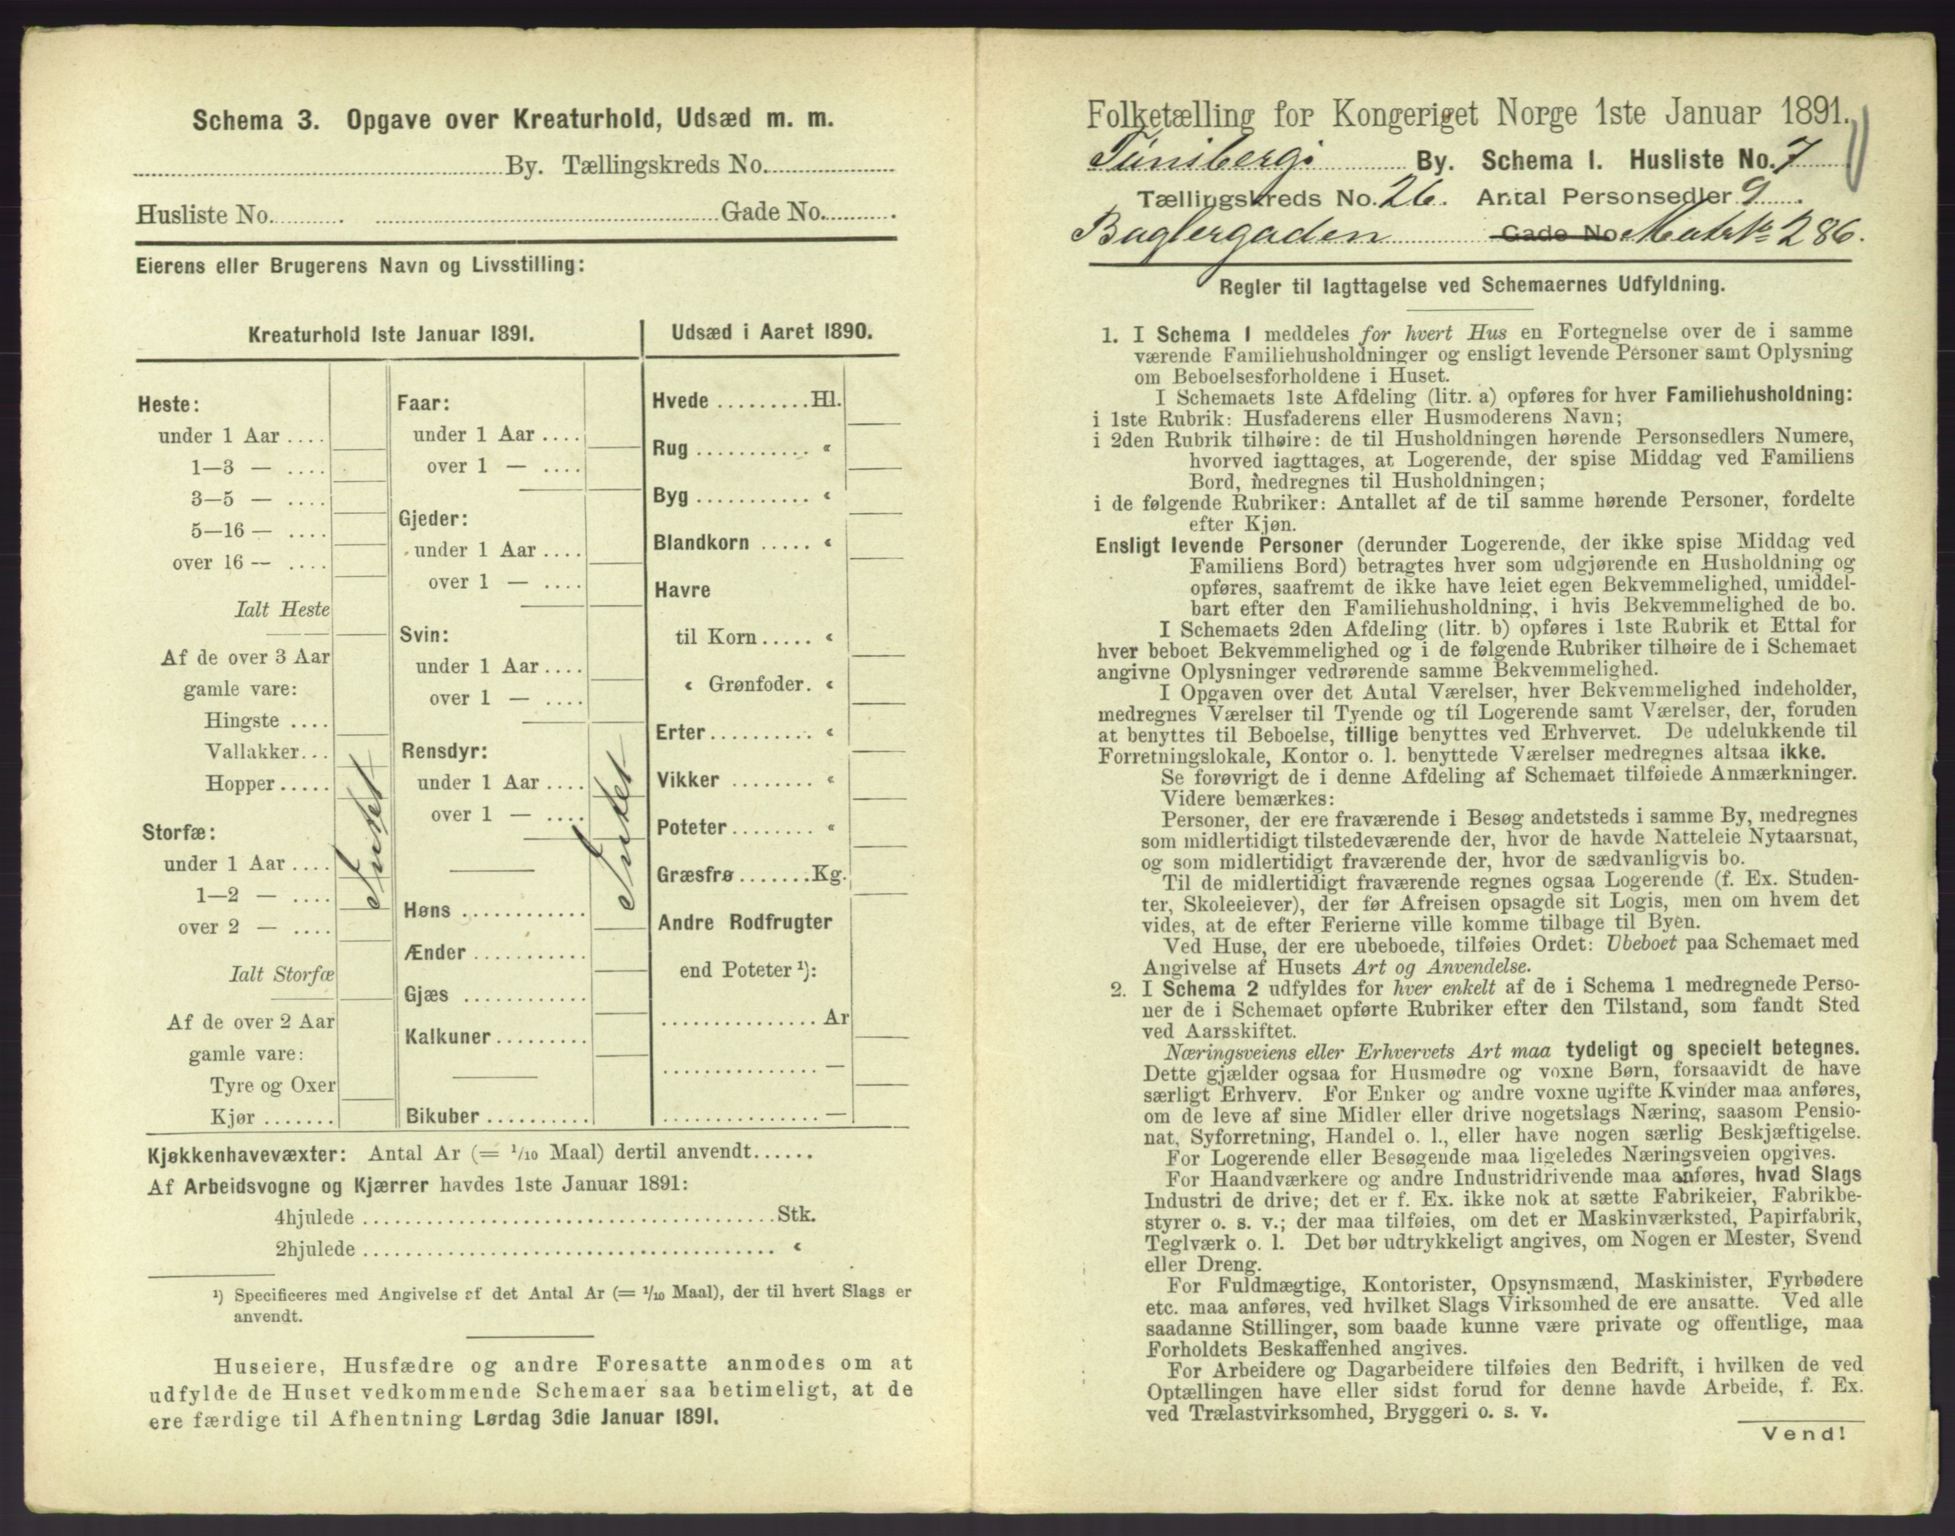 Schema 3. Opgave over Kreaturhold, Udsæd m. m.
By. Tællingskreds No.
Husliste No. Gade No.
Eierens eller Brugerens Navn og Livsstilling:
Kreaturhold 1ste Januar 1891.
Heste:
under 1 Aar
1—3 —
3—5 —
5—16 —
over 16 —
Ialt Heste
Af de over 3 Aar
gamle vare:
Hingste
Vallakker
Hopper
Intet
Storfæ:
under 1 Aar
1—2 —
over 2 —
Ialt Storfæ
Af de over 2 Aar
gamle vare:
Tyre og Oxer
Kjør
Faar:
under 1 Aar
over 1 —
Gjeder:
under 1 Aar
over 1 —
Svin:
under 1 Aar
over 1 —
Rensdyr:
under 1 Aar
over 1 —
Intet
Høns
Ænder
Gjæs
Kalkuner
Bikuber
Udsæd i Aaret 1890.
Hvede Hl.
Rug «
Byg «
Blandkorn «
Havre
til Korn «
« Grønfoder. «
Erter «
Vikker «
Poteter «
Græsfrø Kg.
Andre Rodfrugter
end Poteter ¹):
Ar
—
—
Kjøkkenhavevæxter: Antal Ar (= 1/10 Maal) dertil anvendt
Af Arbeidsvogne og Kjærrer havdes 1ste Januar 1891:
4hjulede Stk.
2hjulede «
¹) Specificeres med Angivelse af det Antal Ar (= 1/10 Maal), der til hvert Slags er
anvendt.
Huseiere, Husfædre og andre Foresatte anmodes om at
udfylde de Huset vedkommende Schemaer saa betimeligt, at de
ere færdige til Afhentning Lørdag 3die Januar 1891.
Folketælling for Kongeriget Norge 1ste Januar 1891.
Tünsberg By. Schema I. Husliste No. 7
Tællingskreds No. 26. Antal Personsedler 9
Baglergaden Gade No. Matr № 286.
Regler til Iagttagelse ved Schemaernes Udfyldning.
1. I Schema 1 meddeles for hvert Hus en Fortegnelse over de i samme
værende Familiehusholdninger og ensligt levende Personer samt Oplysning
om Beboelsesforholdene i Huset.
I Schemaets 1ste Afdeling (litr. a) opføres for hver Familiehusholdning:
i 1ste Rubrik: Husfaderens eller Husmoderens Navn;
i 2den Rubrik tilhøire: de til Husholdningen hørende Personsedlers Numere,
hvorved iagttages, at Logerende, der spise Middag ved Familiens
Bord, medregnes til Husholdningen;
i de følgende Rubriker: Antallet af de til samme hørende Personer, fordelte
efter Kjøn.
Ensligt levende Personer (derunder Logerende, der ikke spise Middag ved
Familiens Bord) betragtes hver som udgjørende en Husholdning og
opføres, saafremt de ikke have leiet egen Bekvemmelighed, umiddel-
bart efter den Familiehusholdning, i hvis Bekvemmelighed de bo.
I Schemaets 2den Afdeling (litr. b) opføres i 1ste Rubrik et Ettal for
hver beboet Bekvemmelighed og i de følgende Rubriker tilhøire de i Schemaet
angivne Oplysninger vedrørende samme Bekvemmelighed.
I Opgaven over det Antal Værelser, hver Bekvemmelighed indeholder,
medregnes Værelser til Tyende og til Logerende samt Værelser, der, foruden
at benyttes til Beboelse, tillige benyttes ved Erhvervet. De udelukkende til
Forretningslokale, Kontor o. l. benyttede Værelser medregnes altsaa ikke.
Se forøvrigt de i denne Afdeling af Schemaet tilføiede Anmærkninger.
Videre bemærkes:
Personer, der ere fraværende i Besøg andetsteds i samme By, medregnes
som midlertidigt tilstedeværende der, hvor de havde Natteleie Nytaarsnat,
og som midlertidigt fraværende der, hvor de sædvanligvis bo.
Til de midlertidigt fraværende regnes ogsaa Logerende (f. Ex. Studen-
ter, Skoleeiever), der før Afreisen opsagde sit Logis, men om hvem det
vides, at de efter Ferierne ville komme tilbage til Byen.
Ved Huse, der ere ubeboede, tilføies Ordet: Ubeboet paa Schemaet med
Angivelse af Husets Art og Anvendelse.
2. I Schema 2 udfyldes for hver enkelt af de i Schema 1 medregnede Perso-
ner de i Schemaet opførte Rubriker efter den Tilstand, som fandt Sted
ved Aarsskiftet.
Næringsveiens eller Erhvervets Art maa tydeligt og specielt betegnes.
Dette gjælder ogsaa for Husmødre og voxne Børn, forsaavidt de have
særligt Erhverv. For Enker og andre voxne ugifte Kvinder maa anføres,
om de leve af sine Midler eller drive nogetslags Næring, saasom Pensio-
nat, Syforretning, Handel o. l., eller have nogen særlig Beskjæftigelse.
For Logerende eller Besøgende maa ligeledes Næringsveien opgives.
For Haandværkere og andre Industridrivende maa anføres, hvad Slags
Industri de drive; det er f. Ex. ikke nok at sætte Fabrikeier, Fabrikbe-
styrer o. s. v.; der maa tilføies, om det er Maskinværksted, Papirfabrik,
Teglværk o. l. Det bør udtrykkeligt angives, om Nogen er Mester, Svend
eller Dreng.
For Fuldmægtige, Kontorister, Opsynsmænd, Maskinister, Fyrbødere
etc. maa anføres, ved hvilket Slags Virksomhed de ere ansatte. Ved alle
saadanne Stillinger, som baade kunne være private og offentlige, maa
Forholdets Beskaffenhed angives.
For Arbeidere og Dagarbeidere tilføies den Bedrift, i hvilken de ved
Optællingen have eller sidst forud for denne havde Arbeide, f. Ex.
ved Trælastvirksomhed, Bryggeri o. s. v.
Vend!